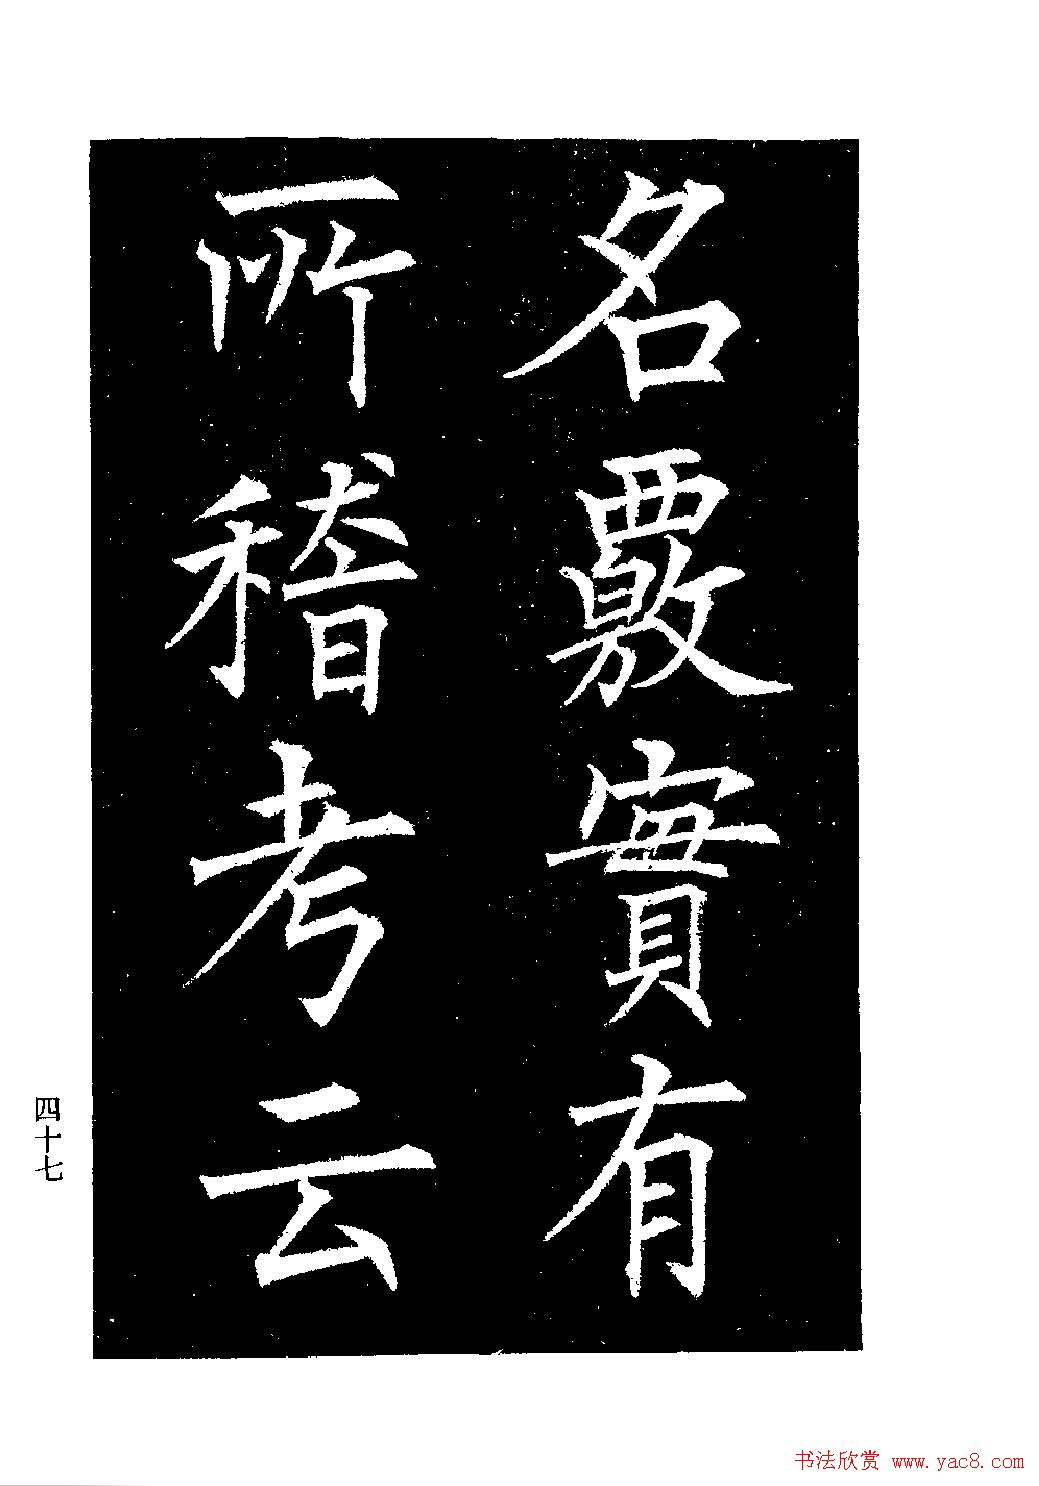 名覈實有
所稽考云
四十七
书法欣赏 www.yac8.com